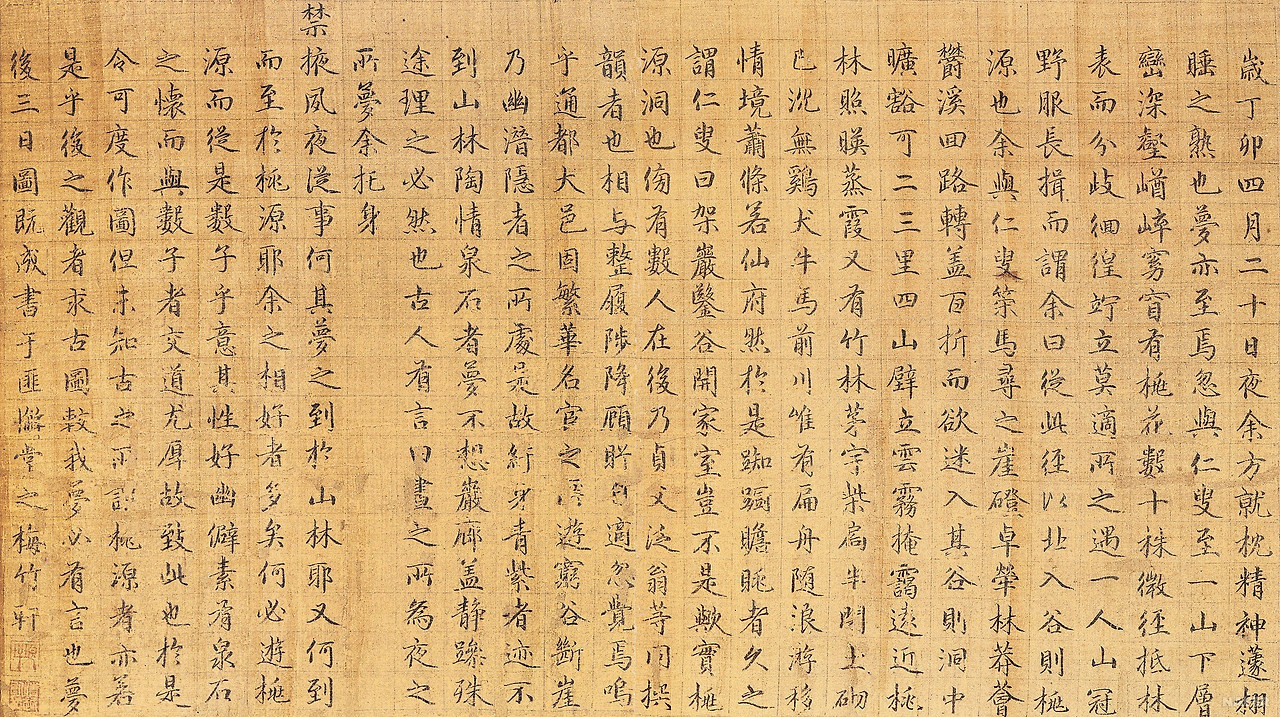 歲丁卯四月二十日夜余方就枕精神蘧栩
睡之熟也夢亦至焉忽與仁叟至一山下層
巒深壑嶆崒窈窅有桃花數十株微徑抵林
表而分歧徊徨竚立莫適所之遇一人山冠
野服長揖而謂余曰從此徑以北入谷則桃
源也余與仁叟策馬尋之崖磴卓犖林莽薈
欝溪回路轉盖百折而欲迷入其谷則洞中
曠豁可二三里四山壁立雲霧掩靄遠近桃
林照暎蒸霞又有竹林茅宇柴扃半開土砌
已沈無鷄犬牛馬前川唯有扁舟随浪游移
情境蕭條若仙府然於是踟蹰瞻眺者久之
謂仁叟曰架巖鑿谷開家室豈不是歟實桃
源洞也傍有數人在後乃貞父泛翁等同撰
韻者也相与整履陟降顧眄自適忽覺焉嗚
乎通都大邑固繁華名宦之所遊窮谷斷崖
乃幽潜隱者之所處是故紆身青紫者迹不
到山林陶情泉石者夢不想巖廊盖静躁殊
途理之必然也古人有言曰晝之所為夜之
所夢余托身
禁掖夙夜從事何其夢之到於山林耶又何到
而至於桃源耶余之相好者多矣何必遊桃
源而從是數子乎意其性好幽僻素有泉石
之懷而與數子者交道尤厚故致此也於是
令可度作圖但未知古之所謂桃源者亦若
是乎後之觀者求古圖較我夢必有言也夢
後三日圖既成書于匪懈堂之梅竹軒